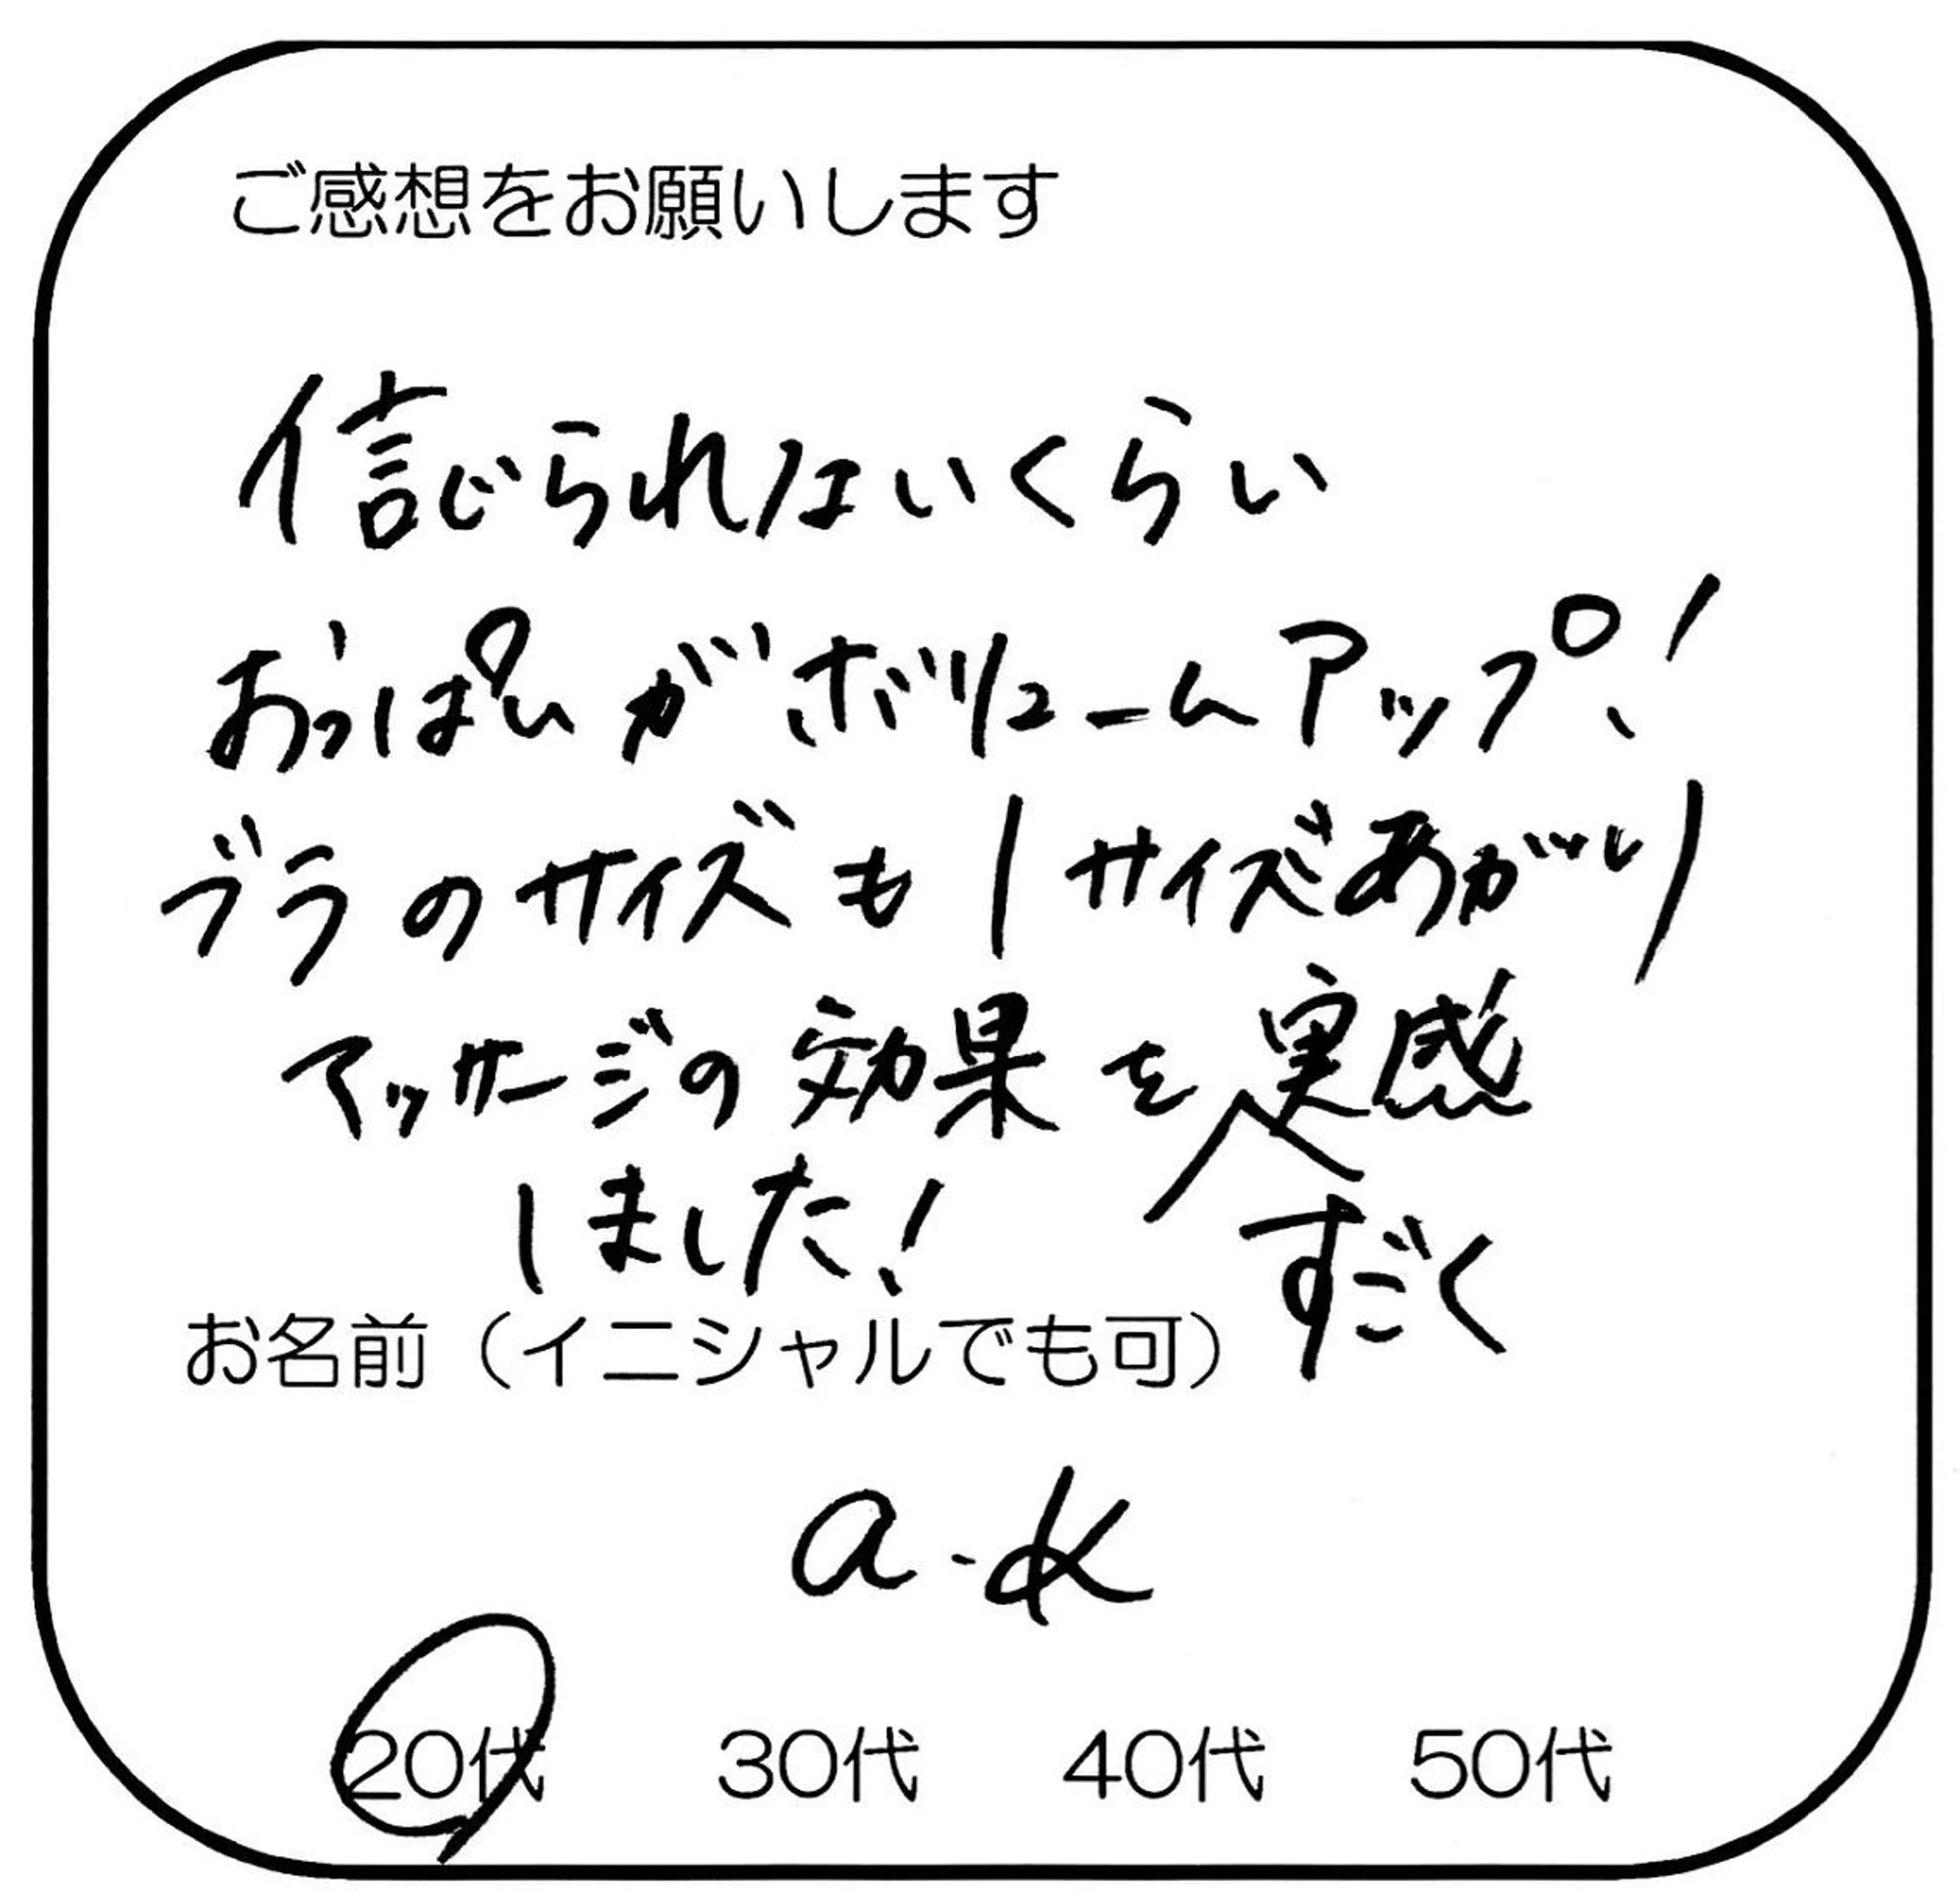 ご感想をお願いします
信じられないくらい
おっぱいがボリュームアップ!
ブラのサイズも1サイズあがり
マッサージの効果を実感
しました!
すごく
お名前(イニシャルでも可)
a.k
20代 30代 40代 50代